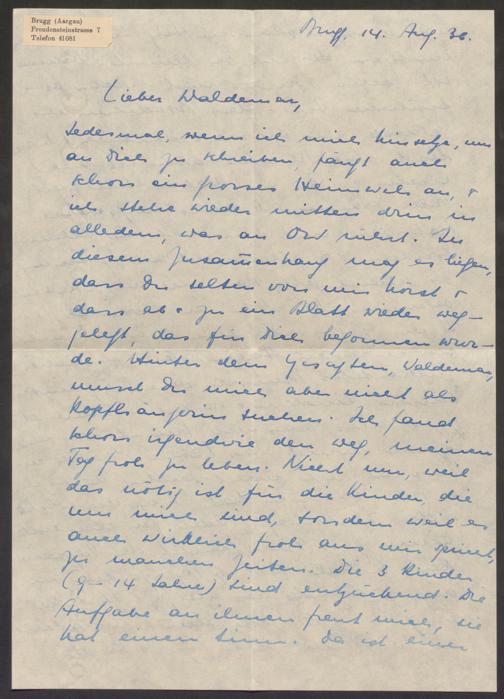 Brugg (Aargau)
Freudensteinstrasse 7
Telefon 41081
Brugg, 14. Aug. 36.
Lieber Waldemar,
Jedesmal, wenn ich mich hinsetze, um
an Dich zu schreiben, fängt auch
schon ein grosses Heimweh an, +
ich stehe wieder mitten drin in
alledem, was an Ort rührt. In
diesem Zusammenhang mag es liegen,
dass Du selten von mir hörst +
dass ab + zu ein Blatt wieder weg-
gelegt, das für Dich begonnen wur-
de. Hinter dem Waldemar,
musst Du mich aber nicht als
Kopfhängerin suchen. Ich fand
schon irgendwie den Weg, meinen
Tag froh zu leben. Nicht nur, weil
das nötig ist für die Kinder, die
um mich sind, sondern weil es
auch wirklich froh aus mir
zu manchen Zeiten. Die 3 Kinder
(9 - 14 Jahre) sind entzückend. Die
Aufgabe an ihnen freut mich, sie
hat einen Sinn. Da ist einer